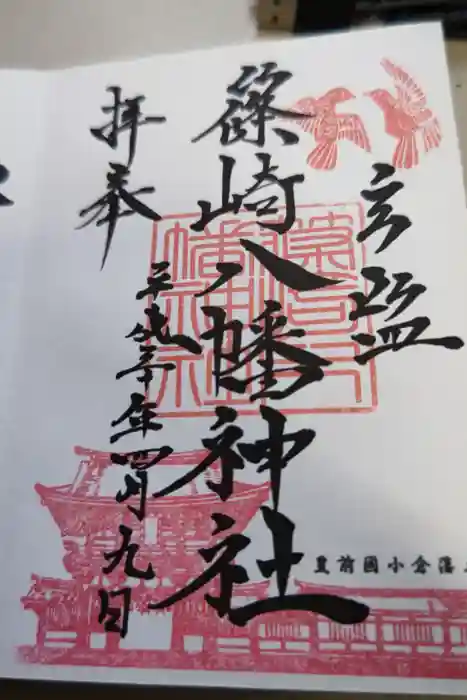 篠崎八幡神社
拝奉
平成三十年四月九日
豊前國小倉藩